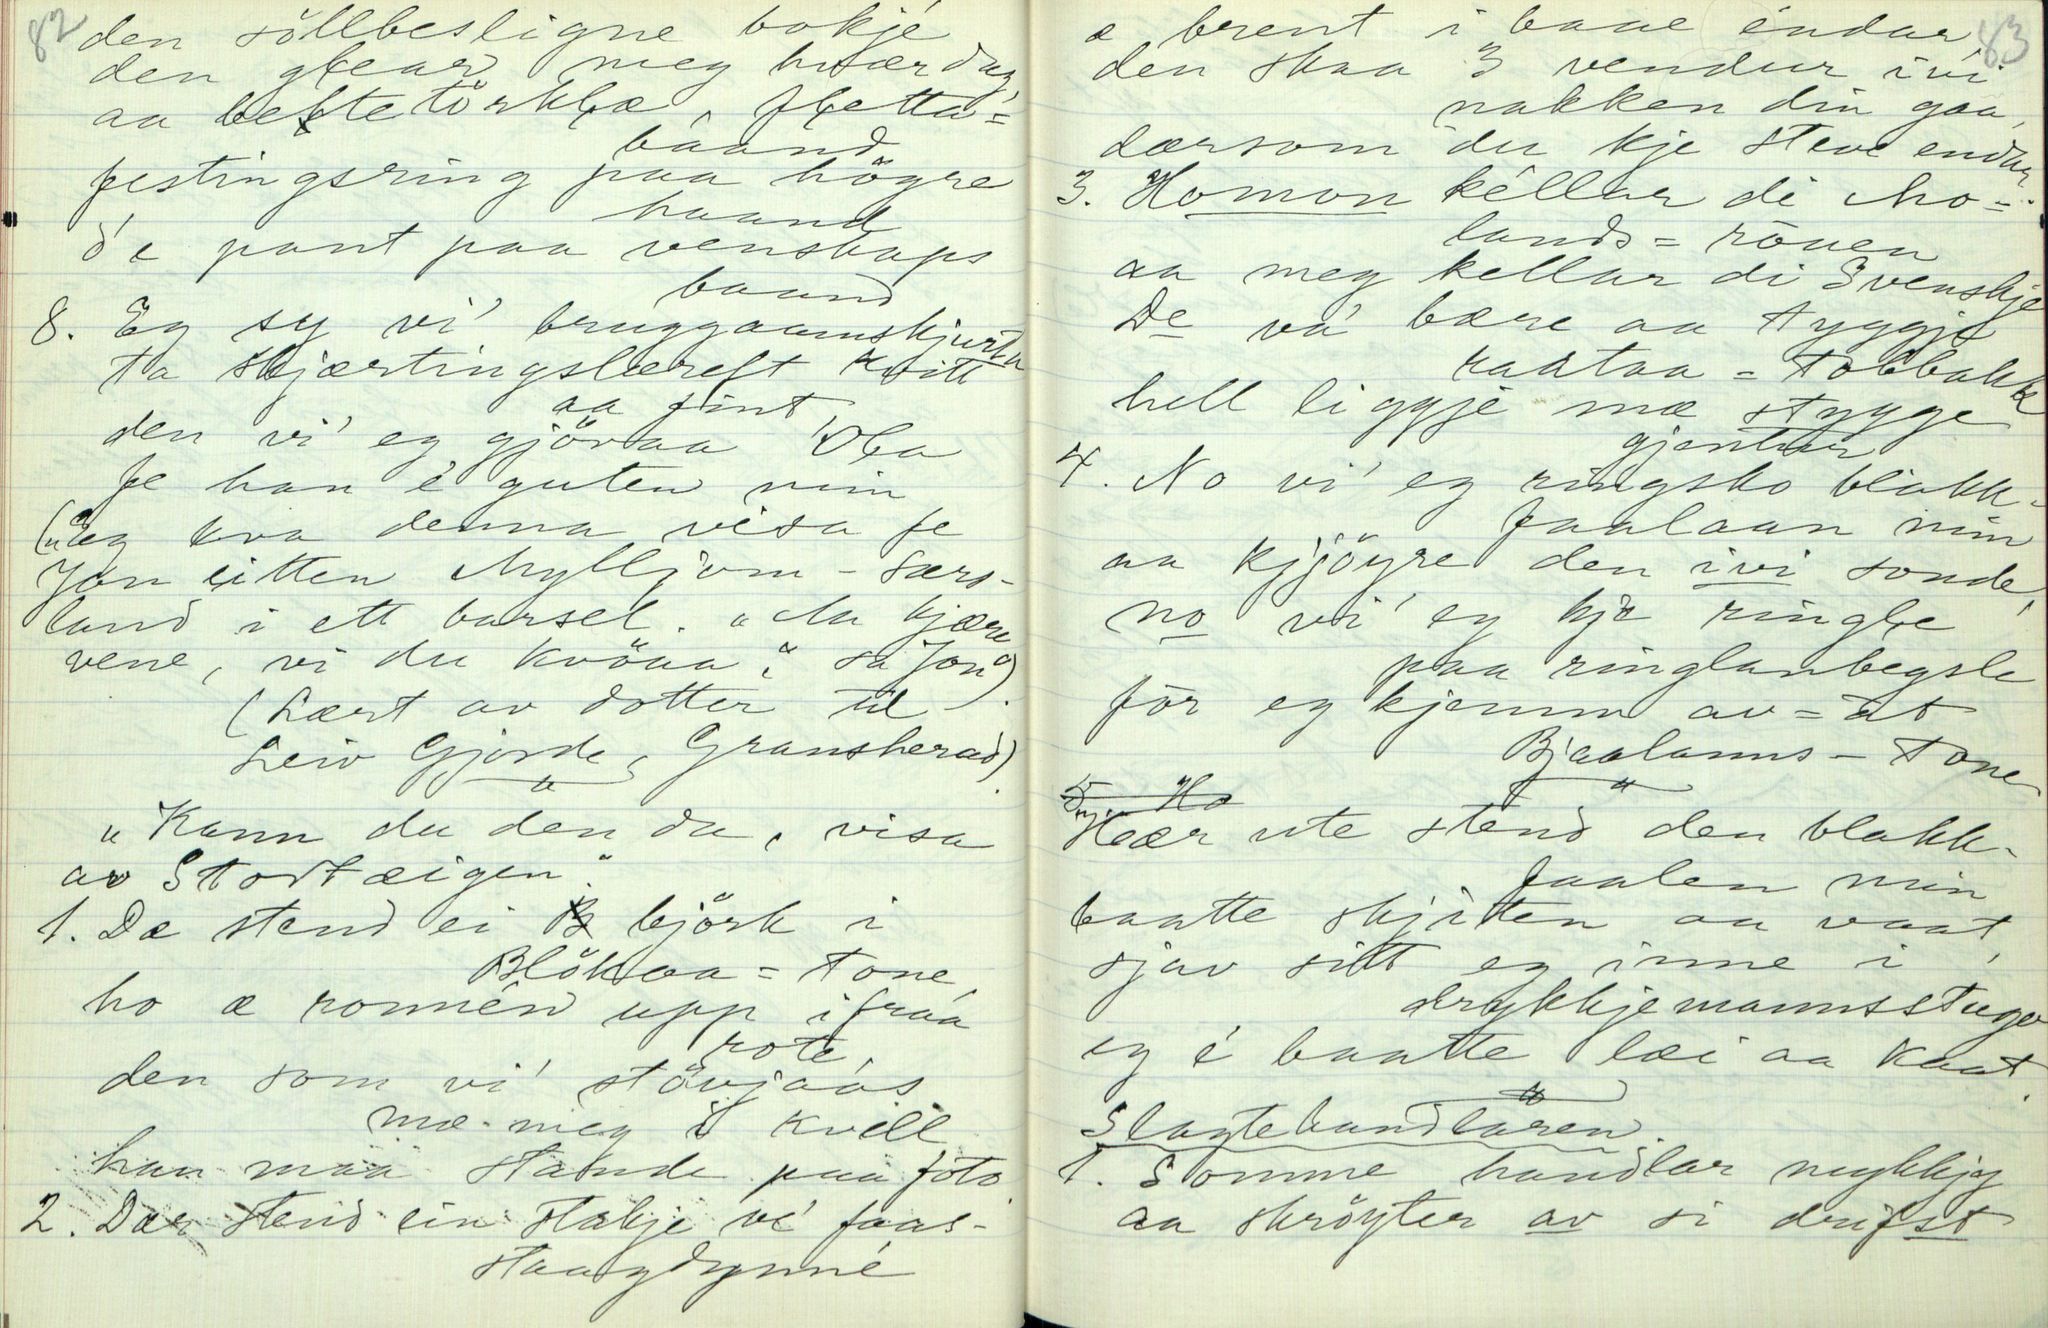 82
den söllbesligne bokjé
den glear meg hvær dag,
aa beste törklæ, fletta=
baand
festingsring paa högre
haand
d'e pant paa venskaps
baand
8. Eg sy vi' bruggaamskjurta
ta skjærtingslereft kvitt
aa fint,
den vi' eg gjövaa Ola
fe han é guten min
("Eg kva denna visa fe
Jon eitten Mylljom-Særs-
land i ett barsel. "Au kjære
vene, vi du kvöaa"? sa Jon")
(Lært av dotter til
Leiv Gjorde, Gransherad).
"Kann du den da, visa
av Stodtæigen."
1. Dæ stend ei björk i
Blökaa=tone,
ho æ ronnén upp ifraa
rote,
den som vi' stövjaas
mæ meg i kvell
han maa stande paa foto.
2. Dær stend ein stakje vé faas-
staagdynné
83
æ brent i baae éndar,
den skaa 3 vendur ivi
nakken din gaa,
dærsom du kje steve endar.
3. Homon kéllar di Mo=
lands=röuen
aa meg kellar di Svenskje
De va' bære aa tyggje
raataa=tobbakk
hell liggje mæ stygge
gjentur
4. No vi' eg ringsko blakk-
faalaan min
aa kjöyre den ivi sonde,
no vi' eg kje ringle
paa ringlanbegsle
för eg kjemm av=at
Bjaalanns-Tone
5. Ho
Hær ute stend den blakk-
faalen min
baatte skjiten aa vaat,
sjav sitt eg inne i
drykkjemannsstugo
eg é baatte læi aa kaat.
Slagtehandlaren.
1. Somme handlar mykkjy
aa skröyter av si drifst